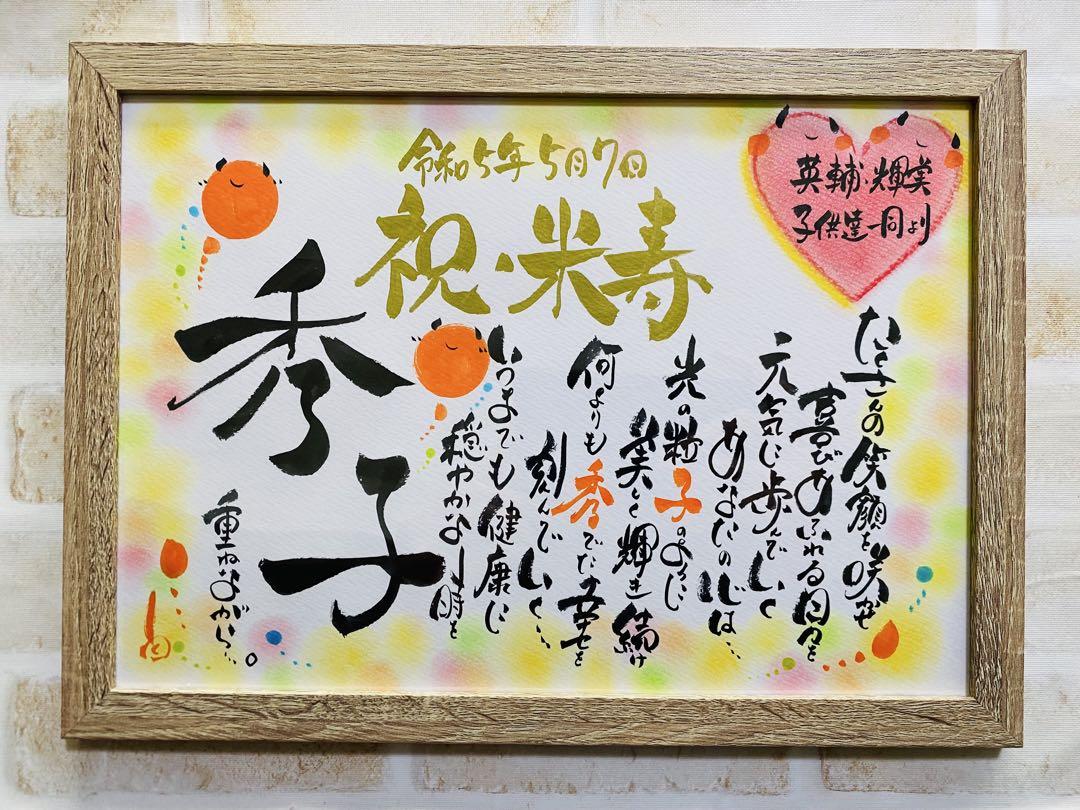 令和5年5月7日
祝・米寿
英輔・輝実
子供達一同より
秀子
たくさんの笑顔を咲かせ
喜びあふれる日々を
元気に歩んでいく
あなたの心は…
光の粒子のように
美しく輝き続け
何よりも秀でた幸せを
刻んでいく…
いつまでも健康に
穏やかな時を
重ねながら…。